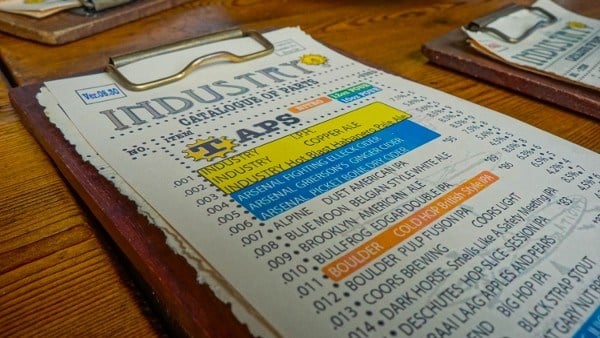 Ver.08.80
INDUSTRY
CATALOGUE OF PARTS
NO. ITEM
TAPS
NITRO
.001 INDUSTRY I.P.A.
.002 INDUSTRY COPPER ALE
.003 INDUSTRY Hot Blog Habanero Pale Ale
.004 ARSENAL FIGHTING ELLECK CIDER
.005 ARSENAL GRIERSON'S GINGER CIDER
.006 ARSENAL PICKET BONE DRY CIDER
.007 ALPINE DUET AMERICAN IPA
.008 BLUE MOON BELGIAN STYLE WHITE ALE
.009 BROOKLYN AMERICAN ALE
.010 BULLFROG EDGAR DOUBLE IPA
.011 BOULDER COLD HOP British Style IPA
.012 BOULDER PULP FUSION IPA
.013 COORS BREWING COORS LIGHT
.014 DARK HORSE Smells Like A Safety Meeting IPA
DESCHUTES HOP SLICE SESSION IPA
APPLES AND PEARS
BIG HOP IPA
BLACK STRAP STOUT
INDUSTRY